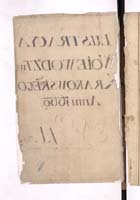 LUSTRACYA
WOIEWODZTW
KRAKOWSKÉGO
Anni 1669